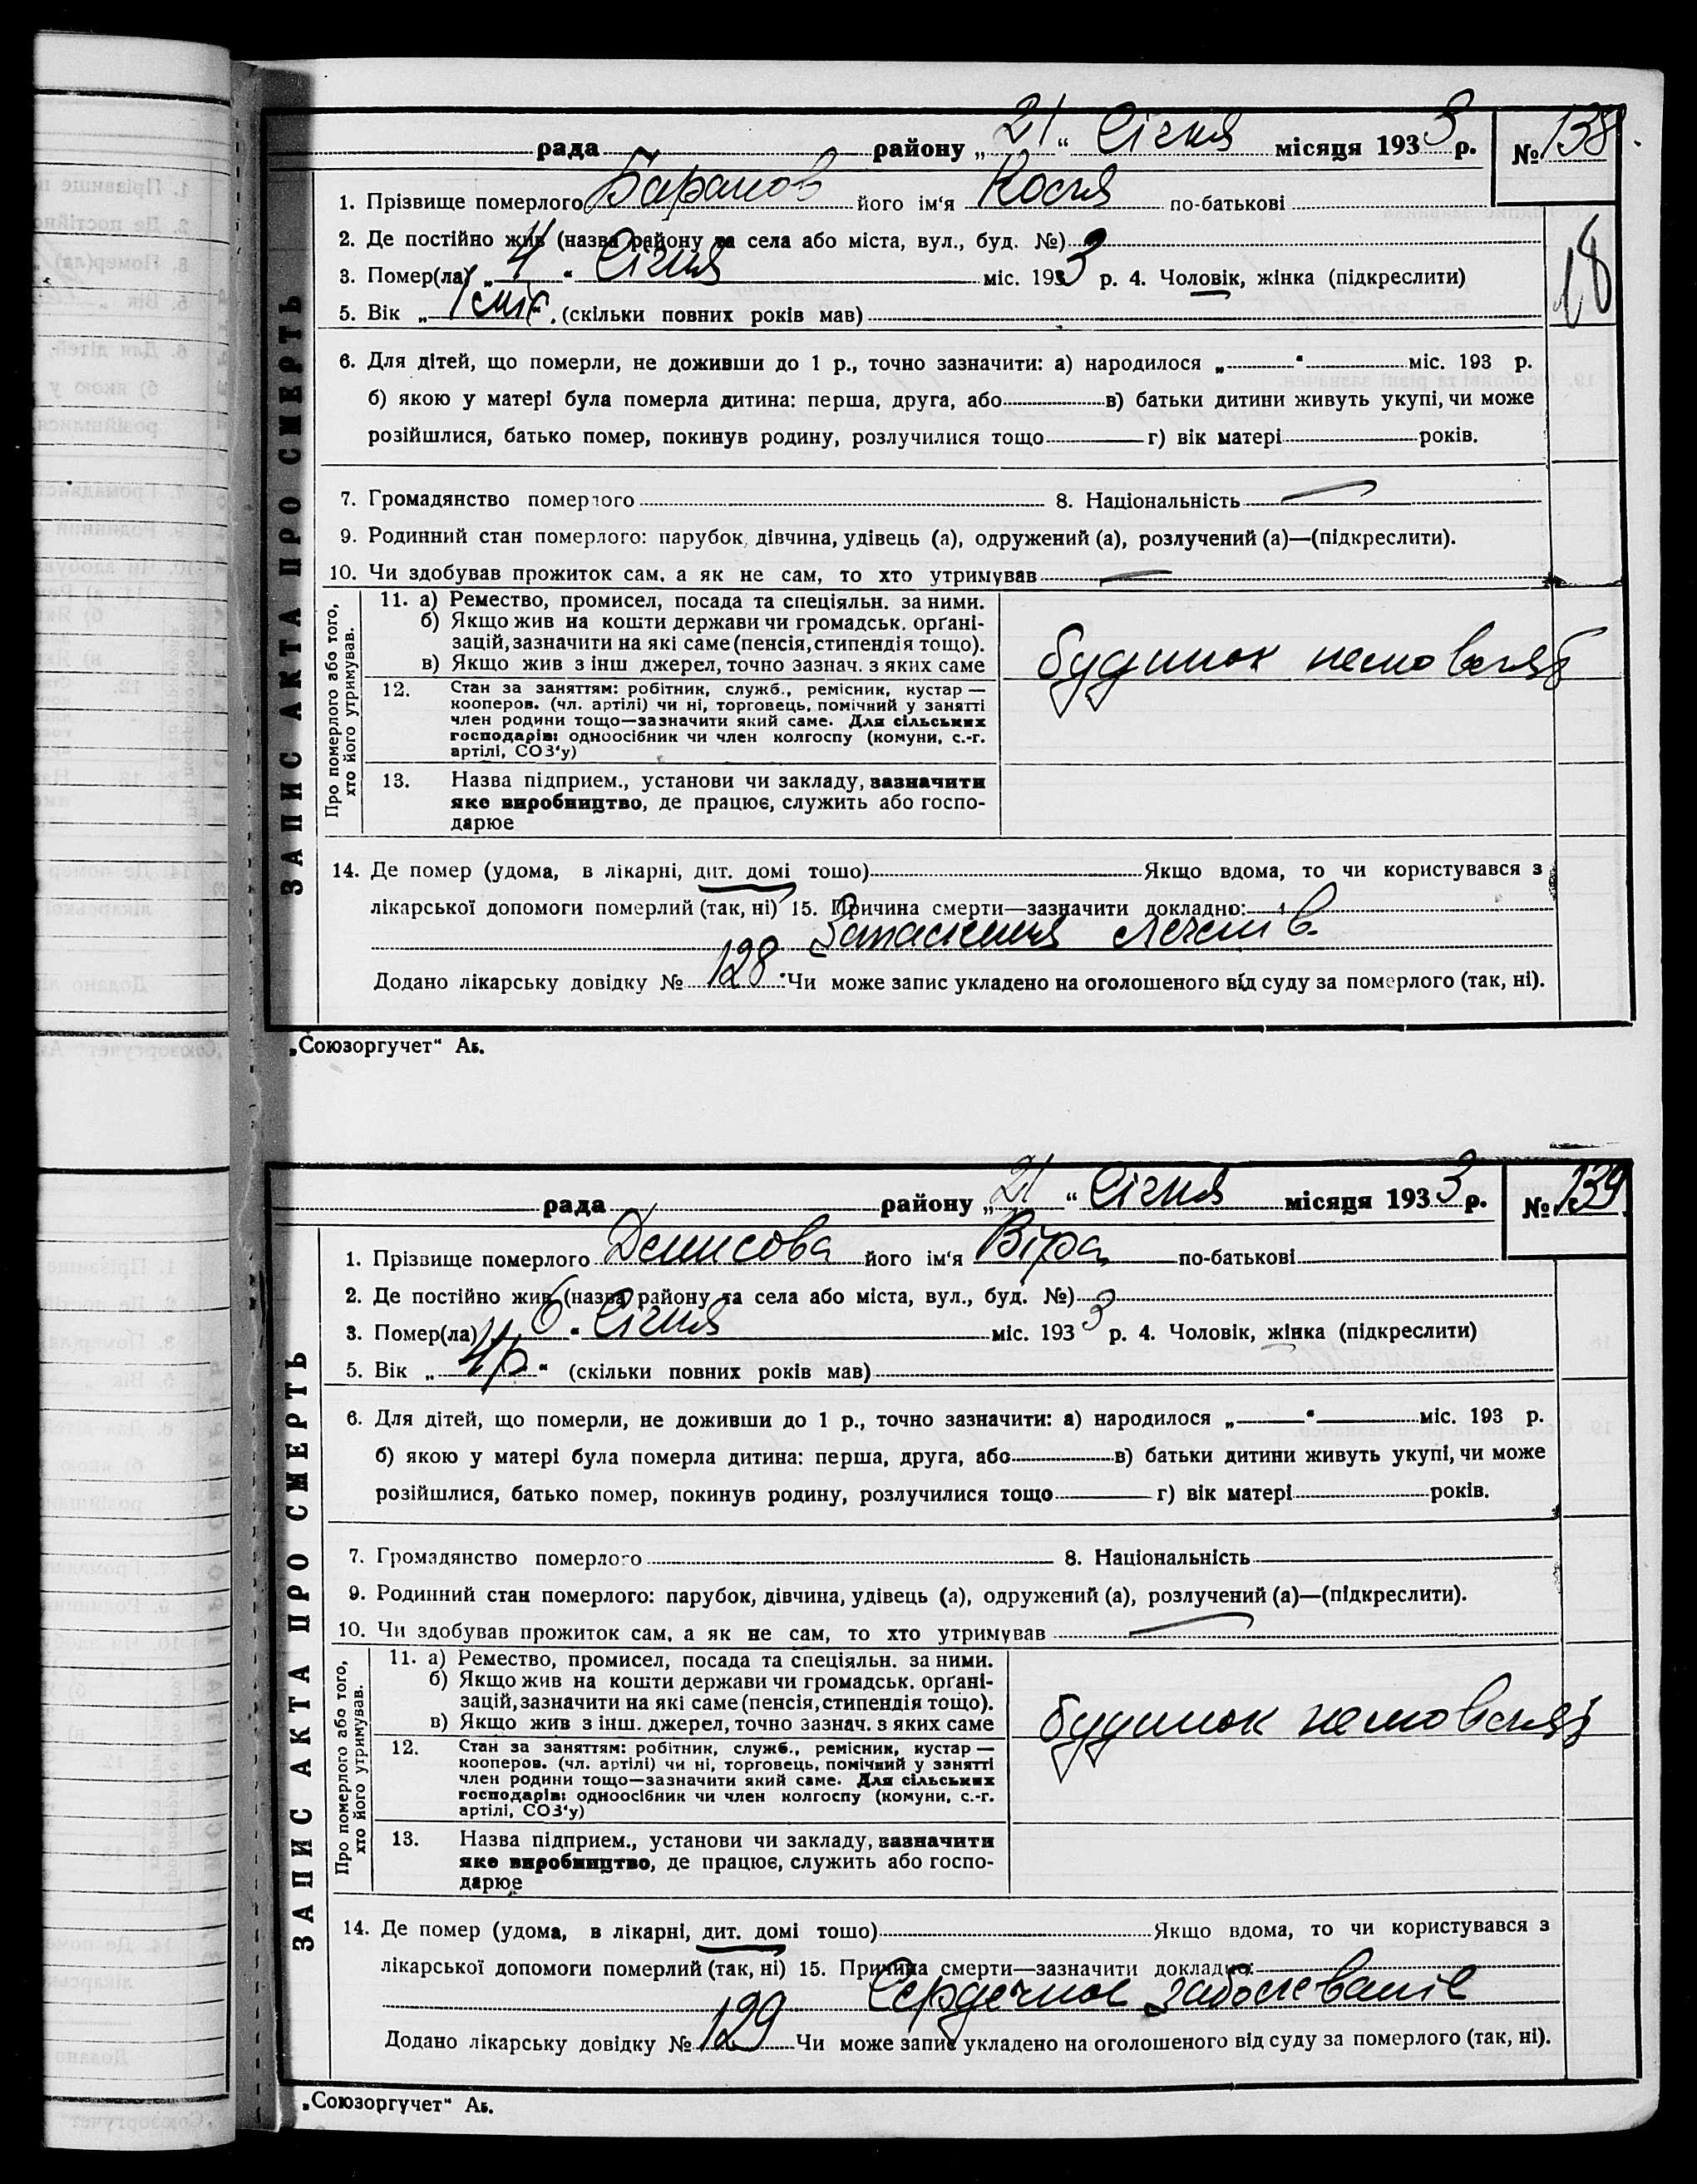 ЗАПИС АКТА ПРО СМЕРТЬ
рада района „21“ Січня місяця 1933 р. № 138.
1. Прізвище померлого Баранов його ім‘я Костя по-батькові
2. Де постійно жив (назва району та села або міста, вул., буд. №)
3. Помер(ла) „4“ Січня міс. 1933 р. 4. Чоловік, жінка (підкреслити)
18
5. Вік „1 міс“ (скільки повних років мав)
6. Для дітей, що померли, не доживши до 1 р., точно зазначити: а) народилося „ “ міс. 193 р.
б) якою у матері була померла дитина: перша, друга, або в) батьки дитини живуть укупі, чи може
розійшлися, батько помер, покинув родину, розлучилися тощо г) вік матері років.
7. Громадянство померлого 8. Національність
9. Родинний стан померлого: парубок, дівчина, удівець (а), одружений (а), розлучений (а)—(підкреслити).
10. Чи здобував прожиток сам, а як не сам, то хто утримував
Про померлого або того, хто його утримував.
11. а) Ремество, промисел, посада та спеціяльн. за ними.
б) Якщо жив на кошти держави чи громадськ. орґані-
зацій, зазначити на які саме (пенсія, стипендія тощо).
в) Якщо жив з інш джерел, точно зазнач. з яких саме
будинок немовлят
12. Стан за заняттям: робітник, служб., ремісник, кустар —
кооперов. (чл. артілі) чи ні, торговець, помічний у занятті
член родини тощо—зазначити який саме. Для сільських
господарів: одноосібник чи член колгоспу (комуни, с.-г.
артілі, СОЗ‘у)
13. Назва підприєм., установи чи закладу, зазначити
яке виробництво, де працює, служить або госпо-
дарює
14. Де помер (удома, в лікарні, дит. домі тощо) Якщо вдома, то чи користувався з
лікарської допомоги померлий (так, ні) 15. Причина смерти—зазначити докладно:
Запалення легенів
Додано лікарську довідку № 128 Чи може запис укладено на оголошеного від суду за померлого (так, ні).
„Союзоргучет“ Аб.
ЗАПИС АКТА ПРО СМЕРТЬ
рада району „21“ Січня місяця 1933 р. № 139.
1. Прізвище померлого Денисова його ім‘я Віра по-батькові
2. Де постійно жив (назва району та села або міста, вул., буд. №)
3. Помер(ла) „6“ Січня міс. 1933 р. 4. Чоловік, жінка (підкреслити)
5. Вік „4 р“ (скільки повних років мав)
6. Для дітей, що померли, не доживши до 1 р., точно зазначити: а) народилося „ “ міс. 193 р.
б) якою у матері була померла дитина: перша, друга, або в) батьки дитини живуть укупі, чи може
розійшлися, батько помер, покинув родину, розлучилися тощо г) вік матері років.
7. Громадянство померлого 8. Національність
9. Родинний стан померлого: парубок, дівчина, удівець (а), одружений (а), розлучений (а)—(підкреслити).
10. Чи здобував прожиток сам, а як не сам, то хто утримував
Про померлого або того, хто його утримував.
11. а) Ремество, промисел, посада та спеціяльн. за ними.
б) Якщо жив на кошти держави чи громадськ. орґані-
зацій, зазначити на які саме (пенсія, стипендія тощо).
в) Якщо жив з інш. джерел, точно зазнач. з яких саме
будинок немовлят
12. Стан за заняттям: робітник, служб., ремісник, кустар —
кооперов. (чл. артілі) чи ні, торговець, помічний у занятті
член родини тощо—зазначити який саме. Для сільських
господарів: одноосібник чи член колгоспу (комуни, с.-г.
артілі, СОЗ‘у)
13. Назва підприєм., установи чи закладу, зазначити
яке виробництво, де працює, служить або госпо-
дарює
14. Де помер (удома, в лікарні, дит. домі тощо) Якщо вдома, то чи користувався з
лікарської допомоги померлий (так, ні) 15. Причина смерти—зазначити докладно:
Сердечное заболеваніе
Додано лікарську довідку № 129 Чи може запис укладено на оголошеного від суду за померлого (так, ні).
„Союзоргучет“ Аб.